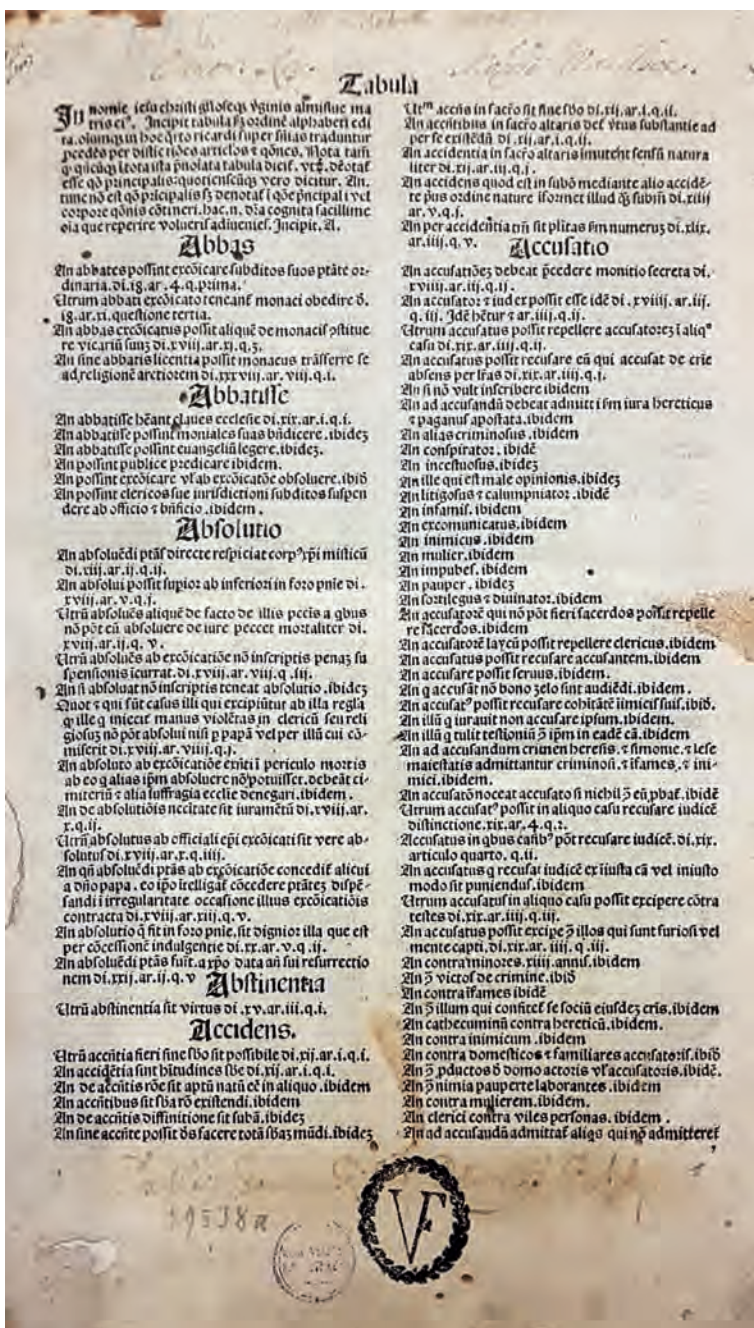 Tabula
In nomie iesu christi gloseqȝ v̄ginis
tris eiꝰ. Incipit tabula ẜm ordinē alphabeti edi
ta.
ṗcedēs per distictiōes articlos ⁊ q̄ōnes. Nota tamē
tunc nō est q̄o principalis sȝ denotat̄ ī q̄oē pēncipali vel
corpore q̄ōnis cōtineri. hac. n. dr̄a cognita facillime
oīa que reperire volueris adiuenies. Incipit. A.
Abbas
An abbates possint excōicare subditos suos ptāte or-
dinaria. di. ig. ar. 4. q. prima.
Utrum abbati excōicato teneant̄ monaci obedire d̄.
ig. ar. xi. questione tertia.
An abbas excōicatus possit aliquē de monacis ꝯstitue
re vicariū suuȝ di. xviij. ar. xj. q. ȝ.
An sine abbatis licentia possit monacus trāsferre se
ad religionē arctiorem di. xxxviij. ar. viij. q. i.
Abbatisse
An abbatisse hēant claues ecclesie di. xix. ar. i. q. i.
An abbatisse possint moniales suas bn̄dicere. ibideȝ
An abbatisse possint euangeliū legere. ibideȝ.
An possint publice predicare ibidem.
An possint excōicare vl̄ ab excōicatōe obsoluere. ibid̄
An possint clericos sue iurisdictioni subditos suspen
dere ab officio ⁊ bn̄ficio. ibidem.
Absolutio
An absoluēdi ptās̄ directe respiciat corpꝰ xp̄i misticū
di. xiij. ar. ij. q. ij.
An absolui possit supior ab inferiori in foro pn̄ie di.
xviij. ar. v. q. j.
Utrū absoluēs aliquē de facto de illis pccīs a qbus
nō pōt eū absoluere de iure peccet mortaliter di.
xviij. ar. ij. q. v.
Utrū absoluēs ab excōicatiōe nō inscriptis penaȝ su
spensionis īcurrat. di. xviij. ar. viij. q. iij.
An si absoluat nō inscriptis teneat absolutio. ibideȝ
Quot ⁊ qui sūt casus illi qui excipiūtur ab illa regl̄a
q̄ ille q iniecit manus violētas in clericū seu reli
giosuȝ nō pōt absolui nisi p papā vel per illū cui cō-
miserit di. xviij. ar. viij. q. j.
An absoluto ab excōicatiōe exn̄ti ī periculo mortis
ab eo q alias ip̄m absoluere nō potuisset. debeāt ci-
miteriū ⁊ alia suffragia ecclīe denegari. ibidem.
An de absolutiōis nēcitate sit iuramētū di. xviij. ar.
x. q. ij.
Utrū absolutus ab officiali ep̄i excōicati sit vere ab-
solutus di. xviij. ar. x. q. iiij.
An qn̄ absoluēdi ptās ab excōicatiōe concedit̄ alicui
a dn̄o papa. eo ip̄o ītelligat̄ cōcedere ptāteȝ dispē-
sandi ī irregularitate occasione illius excōicatiōis
contracta di. xviij. ar. xiij. q. v.
An absolutio q̄ fit in foro pn̄ie. sit dignior illa que est
per cōcessionē indulgentie di. xx. ar. v. q. ij.
An absoluēdi ptās fuit̄. a xp̄o data an̄ sui resurrectio
nem di. xxij. ar. ij. q. v
Abstinentia
Utrū abstinentia sit virtus di. xv. ar. iii. q. i.
Accidens.
Utrū accn̄tia fieri sine sb̄o sit possibile di. xij. ar. i. q. i.
An accidētia sint hītudines sb̄e di. xij. ar. i. q. i.
An de accn̄tis rōe sit aptū natū eē in aliquo. ibidem
An accn̄tibus sit sb̄a rō existendi. ibidem
An de accn̄tis diffinitione sit subā. ibideȝ
An sine accn̄te possit d̄s facere totā sb̄aȝ mūdi. ibideȝ
Utᵐ accn̄s in sacr̄o sit sine sb̄o di. xij. ar. i. q. ii.
An accn̄tibus in sacr̄o altaris det̄ v̄tus substantie ad
per se existēdū di. xij. ar. i. q. ij.
An accidentia in sacr̄o altaris imutent sensū natura
liter di. xij. ar. iij. q. j.
An accidens quod est in subō mediante alio accidē-
te pͥus ordine nature īformet illud q̄ȝ subm̄ di. xliij
ar. v. q. j.
An per accidētia tm̄ sit pl̄itas ẜm numeruȝ di. xlix.
ar. iij. q. v.
Accusatio
An accusatiōeȝ debeat p̄cedere monitio secreta di.
xviiij. ar. iij. q. ij.
An accusator ⁊ iudex possit esse idē di. xviiij. ar. iij.
q. iij. Idē hētur ⁊ ar. iij. q. ij.
Utrum accusatus possit repellere accusatoreȝ ī aliqᵒ
casu di. xix. ar. iij. q. ij.
An accusatus possit recusare eū qui accusat de cr̄ie
absens per lr̄as di. xix. ar. iij. q. j.
An si nō vult inscribere ibidem
An ad accusandū debeat admitti ẜm iura hereticus
⁊ paganus apostata. ibidem
An alias criminosus. ibidem
An conspirator. ibidē
An incestuosus. ibideȝ
An ille qui est male opinionis. ibideȝ
An litigosus ⁊ calumpniator. ibidē
An infamis. ibidem
An excomunicatus. ibidem
An inimicus. ibidem
An mulier. ibidem
An impubes. ibidem
An pauper. ibideȝ
An sortilegus ⁊ diuinator. ibidem
An accusatorē qui nō pōt fieri sacerdos possit repelle
re sacerdos. ibidem
An accusatorē laycū possit repellere clericus. ibidem
An accusatus possit recusare accusantem. ibidem
An accusare possit seruus. ibidem
An q accusāt nō bono ȝelo sint audiēdi. ibidem.
An accusatꝰ possit recusare cohītātē īimicis suis. ibid̄.
An illū q iurauit non accusare ipsum. ibidem.
An illū q tulit testioniū ꝯ̄ ip̄m in eadē cā. ibidem
An ad accusandum crimen heresis. ⁊ simonie. ⁊ lese
maiestatis admittantur criminosi. ⁊ īfames. ⁊ ini-
mici. ibidem.
An accusatōī noceat accusato si nichil ꝯ̄ eū ꝓbat̄. ibidē
Utrum accusatꝰ possit in aliquo casu recusare iudicē
distinctione. xix. ar. 4. q. 2.
Accusatus in qbus casibꝰ pōt recusare iudicē. di. xix.
articulo quarto. q. ii.
An accusatus q recusat iudicē ex iusta cā vel iniusto
modo sit puniendus. ibidem
Utrum accusatus in aliquo casu possit excipere cōtra
testes di. xix. ar. iiij. q. iij.
An accusatus possit excipe ꝯ̄ illos qui sunt furiosi vel
mente capti. di. xix. ar. iiij. q. iij.
An contra minores. xiiij. annis. ibidem
An ꝯ̄ victos de crimine. ibid̄
An contra īfames ibidē
An ꝯ̄ illum qui confitet̄ se sociū eiusdeȝ cr̄is. ibidem
An cathecuminū contra hereticū. ibidem.
An contra inimicum. ibidem
An contra domesticos ⁊ familiares accusatoris. ibid̄
An ꝯ̄ ꝓductos d̄ domo actoris vl̄ accusatoris. ibidē.
An ꝯ̄ nimia paupertate laborantes. ibidem
An contra mulierem. ibidem.
An clerici contra viles personas. ibidem.
An ad accusandū admittat̄ aliqs qui nō admitteret̄
19538a
VF